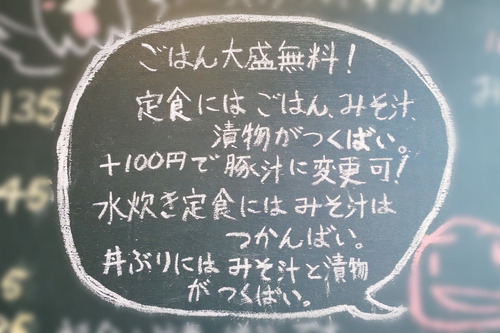 ごはん大盛無料!
定食には ごはん、みそ汁、
漬物がつくばい。
+100円で豚汁に変更可!
水炊き定食には みそ汁は
つかんばい。
丼ぶりには みそ汁と漬物
がつくばい。
135
45
5